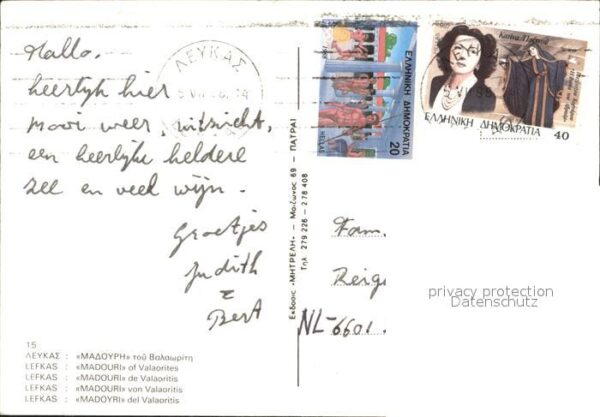 Hallo.
heerlijk hier
mooi weer, uitzicht,
een heerlijke heldere
zee en veel wijn.
Groetjes
Judith
&
Bert
15
ΛΕΥΚΑΣ : «ΜΑΔΟΥΡΗ» τοῦ Βαλαωρίτη
LEFKAS : «MADOURI» of Valaorites
LEFKAS : «MADOURI» de Valaoritis
LEFKAS : «MADOURI» von Valaoritis
LEFKAS : «MADOYRI» del Valaoritis
Εκδοσις «ΜΗΤΡΕΛΗ» — Μαιζωνος 69 — ΠΑΤΡΑΙ
Τηλ. 279 226 - 278 408
ΛΕΥΚΑΣ
ΕΛΛΗΝΙΚΗ ΔΗΜΟΚΡΑΤΙΑ
20
HELLAS
ΕΛΛΗΝΙΚΗ ΔΗΜΟΚΡΑΤΙΑ 40
Fam.
Reig
NL-6601
privacy protection
Datenschutz